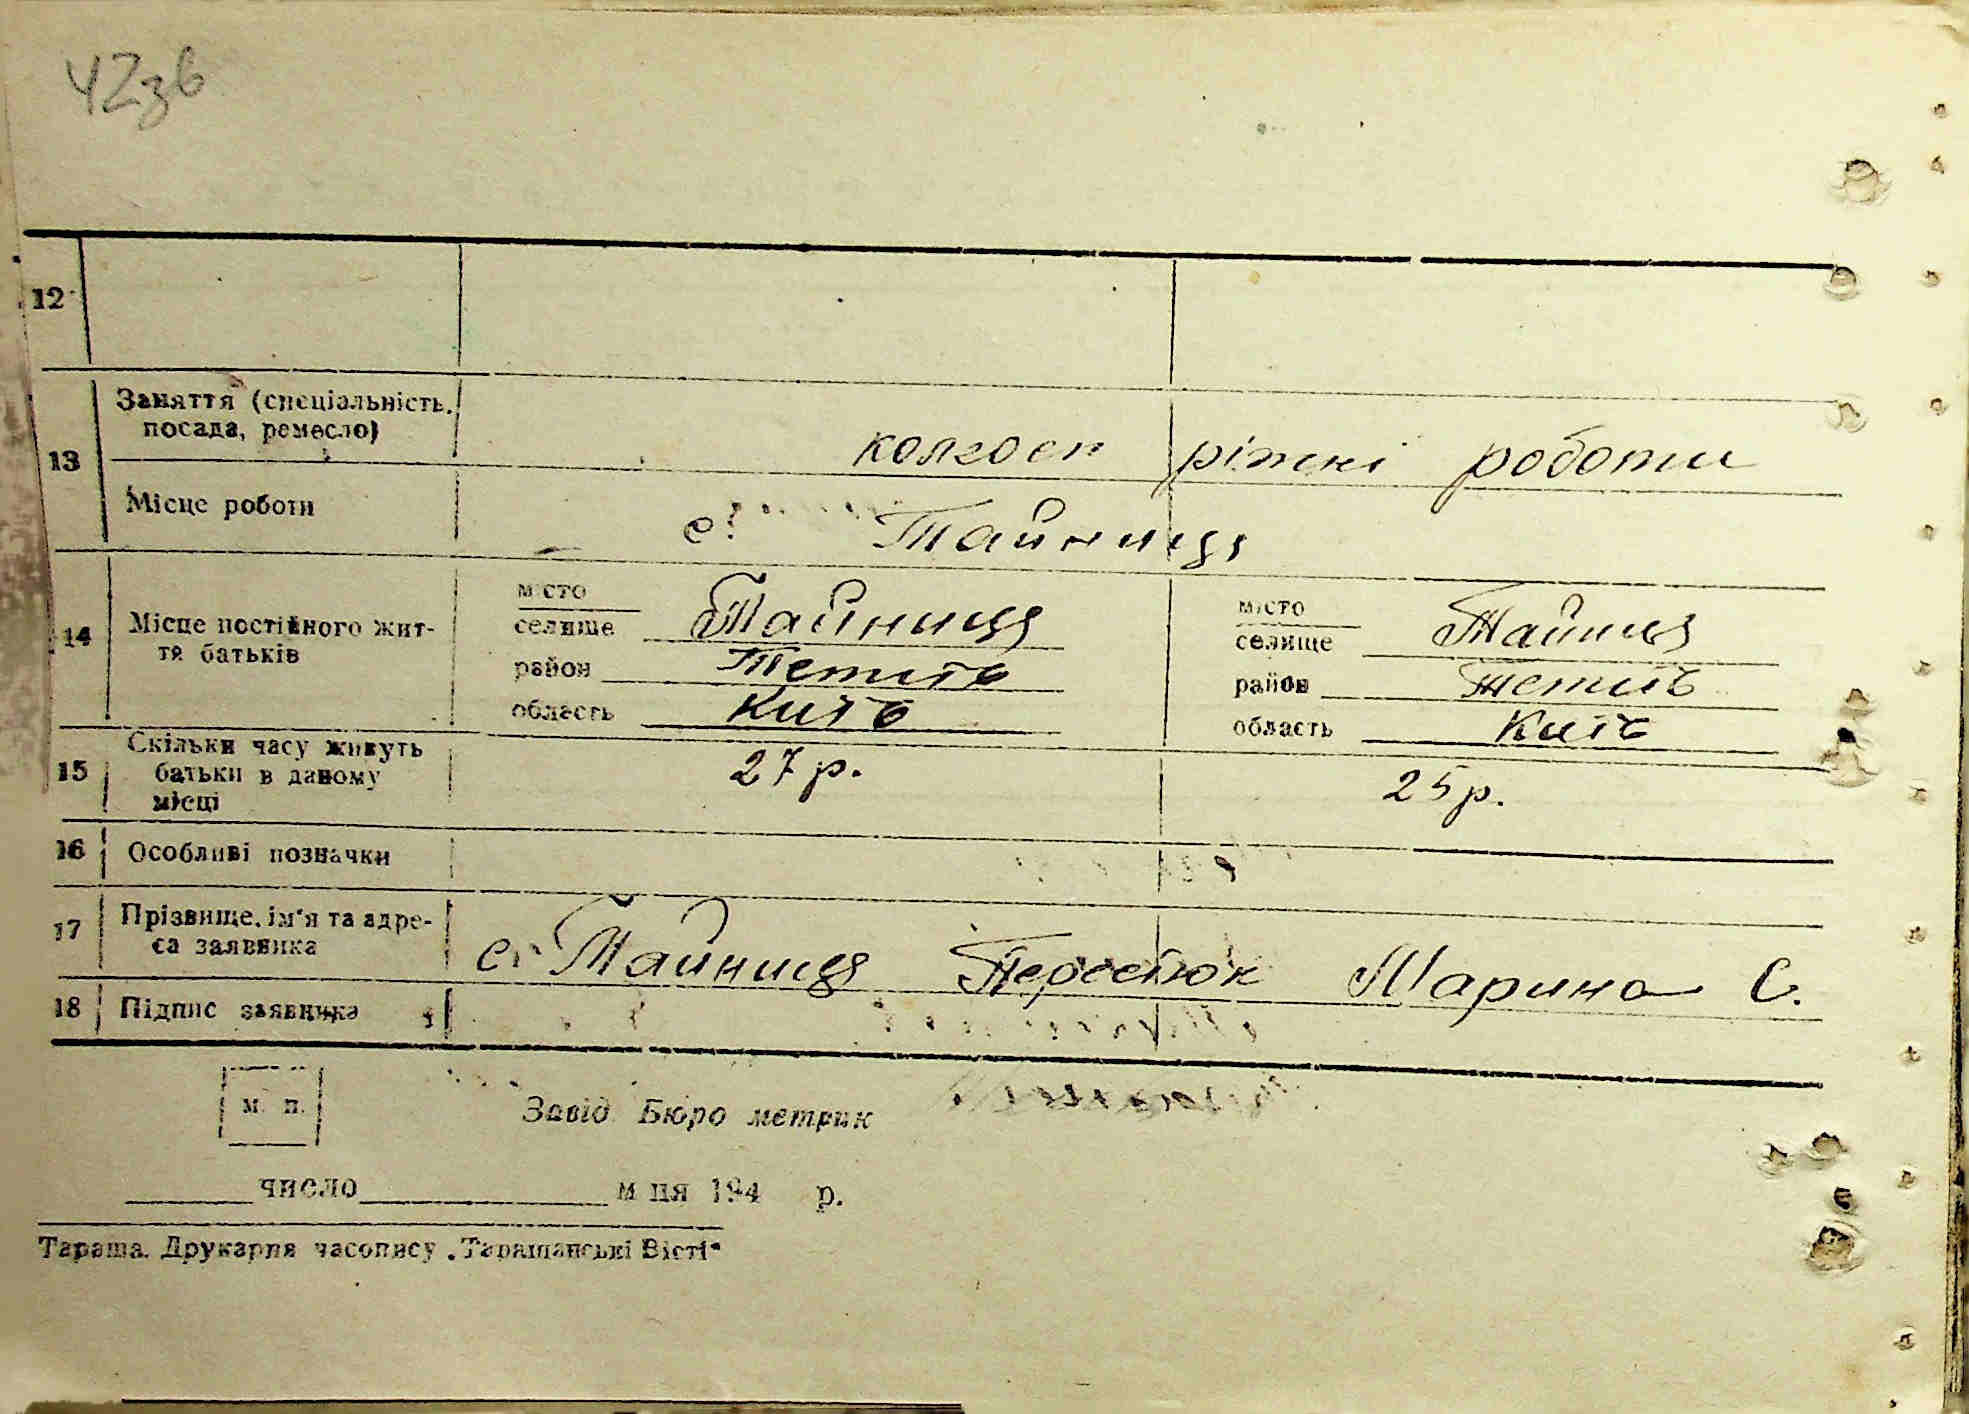 42зв
12
13 Заняття (спеціальність, посада, ремесло) колгосп ріжні роботи
Місце роботи с. Тайниця
14 Місце постійного життя батьків
місто
селище Тайниця
район Тетиїв
область Київ
місто
селище Тайниця
район Тетиїв
область Київ
15 Скільки часу живуть батьки в даному місці 27 р. 25 р.
16 Особливі позначки
17 Прізвище, ім'я та адреса заявника с. Тайниця Марина С.
18 Підпис заявника
м. п. Завід. Бюро метрик
число м-ця 194 р.
Тараща. Друкарня часопису „Таращанські Вісті“